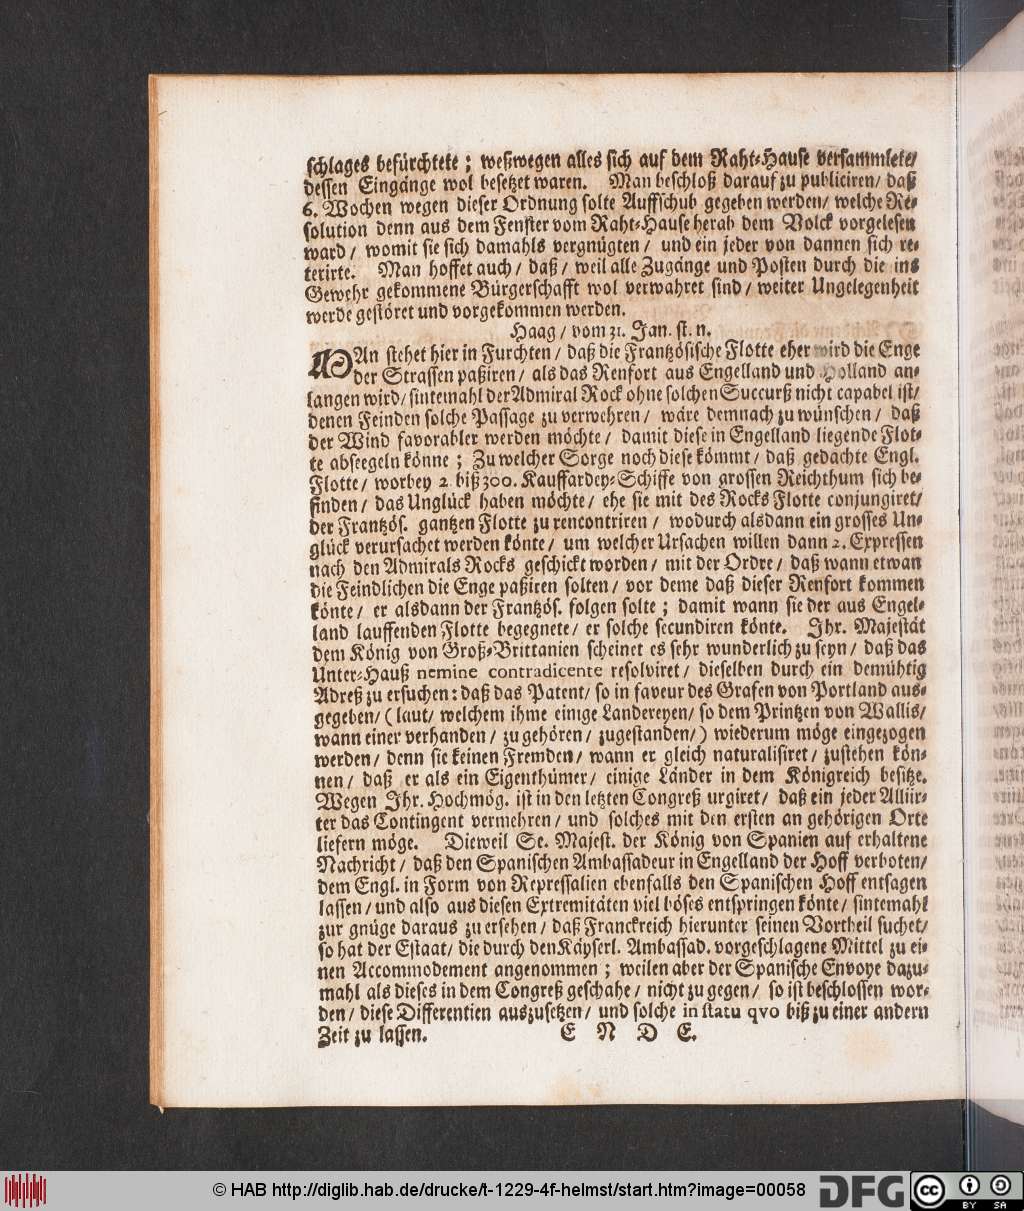 schlages befürchtete; weßwegen alles sich auf dem Raht-Hause versammlete/
dessen Eingänge wol besetzet waren. Man beschloß darauf zu publiciren/ daß
6. Wochen wegen dieser Ordnung solte Auffschub gegeben werden/ welche Re-
solution denn aus dem Fenster vom Raht-Hause herab dem Volck vorgelesen
ward/ womit sie sich damahls vergnügten/ und ein jeder von dannen sich re-
terirte. Man hoffet auch/ daß/ weil alle Zugänge und Posten durch die ins
Gewehr gekommene Bürgerschafft wol verwahret sind/ weiter Ungelegenheit
werde gestöret und vorgekommen werden.
Haag/ vom 31. Jan. st. n.
MAn stehet hier in Furchten/ daß die Frantzösische Flotte eher wird die Enge
der Strassen paßiren/ als das Renfort aus Engelland und Holland an-
langen wird/ sintemahl der Admiral Rock ohne solchen Succurß nicht capabel ist/
denen Feinden solche Passage zu verwehren/ wäre demnach zu wünschen/ daß
der Wind favorabler werden möchte/ damit diese in Engelland liegende Flot-
te abseegeln könne; Zu welcher Sorge noch diese kömmt/ daß gedachte Engl.
Flotte/ worbey 2 biß 300. Kauffardey-Schiffe von grossen Reichthum sich be-
finden/ das Unglück haben möchte/ ehe sie mit des Rocks Flotte conjungiret/
der Frantzös. gantzen Flotte zu rencontriren/ wodurch alsdann ein grosses Un-
glück verursachet werden könte/ um welcher Ursachen willen dann 2. Expressen
nach den Admirals Rocks geschickt worden/ mit der Ordre/ daß wann etwan
die Feindlichen die Enge paßiren solten/ vor deme daß dieser Renfort kommen
könte/ er alsdann der Frantzös. folgen solte; damit wann sie der aus Engel-
land lauffenden Flotte begegnete/ er solche secundiren könte. Ihr. Majestät
dem König von Groß-Brittanien scheinet es sehr wunderlich zu seyn/ daß das
Unter-Hauß nemine contradicente resolviret/ dieselben durch ein demühtig
Adreß zu ersuchen: daß das Patent/ so in faveur des Grafen von Portland aus-
gegeben/ (laut/ welchem ihme einige Landereyen/ so dem Printzen von Wallis/
wann einer verhanden/ zu gehören/ zugestanden/) wiederum möge eingezogen
werden/ denn sie keinen Fremden/ wann er gleich naturalisiret/ zustehen kön-
nen/ daß er als ein Eigenthümer/ einige Länder in dem Königreich besitze.
Wegen Ihr. Hochmög. ist in den letzten Congreß urgiret/ daß ein jeder Alliir-
ter das Contingent vermehren/ und solches mit den ersten an gehörigen Orte
liefern möge. Dieweil Se. Majest. der König von Spanien auf erhaltene
Nachricht/ daß den Spanischen Ambassadeur in Engelland der Hoff verboten/
dem Engl. in Form von Repressalien ebenfalls den Spanischen Hoff entsagen
lassen/ und also aus diesen Extremitäten viel böses entspringen könte/ sintemahl
zur gnüge daraus zu ersehen/ daß Franckreich hierunter seinen Vortheil suchet/
so hat der Estaat/ die durch den Käyserl. Ambassad. vorgeschlagene Mittel zu ei-
nen Accommodement angenommen; weilen aber der Spanische Envoye dazu-
mahl als dieses in dem Congreß geschahe/ nicht zu gegen/ so ist beschlossen wor-
den/ diese Differentien auszusetzen/ und solche in statu qvo biß zu einer andern
Zeit zu lassen. E N D E.
© HAB http://diglib.hab.de/drucke/t-1229-4f-helmst/start.htm?image=00058
DFG
cc BY SA